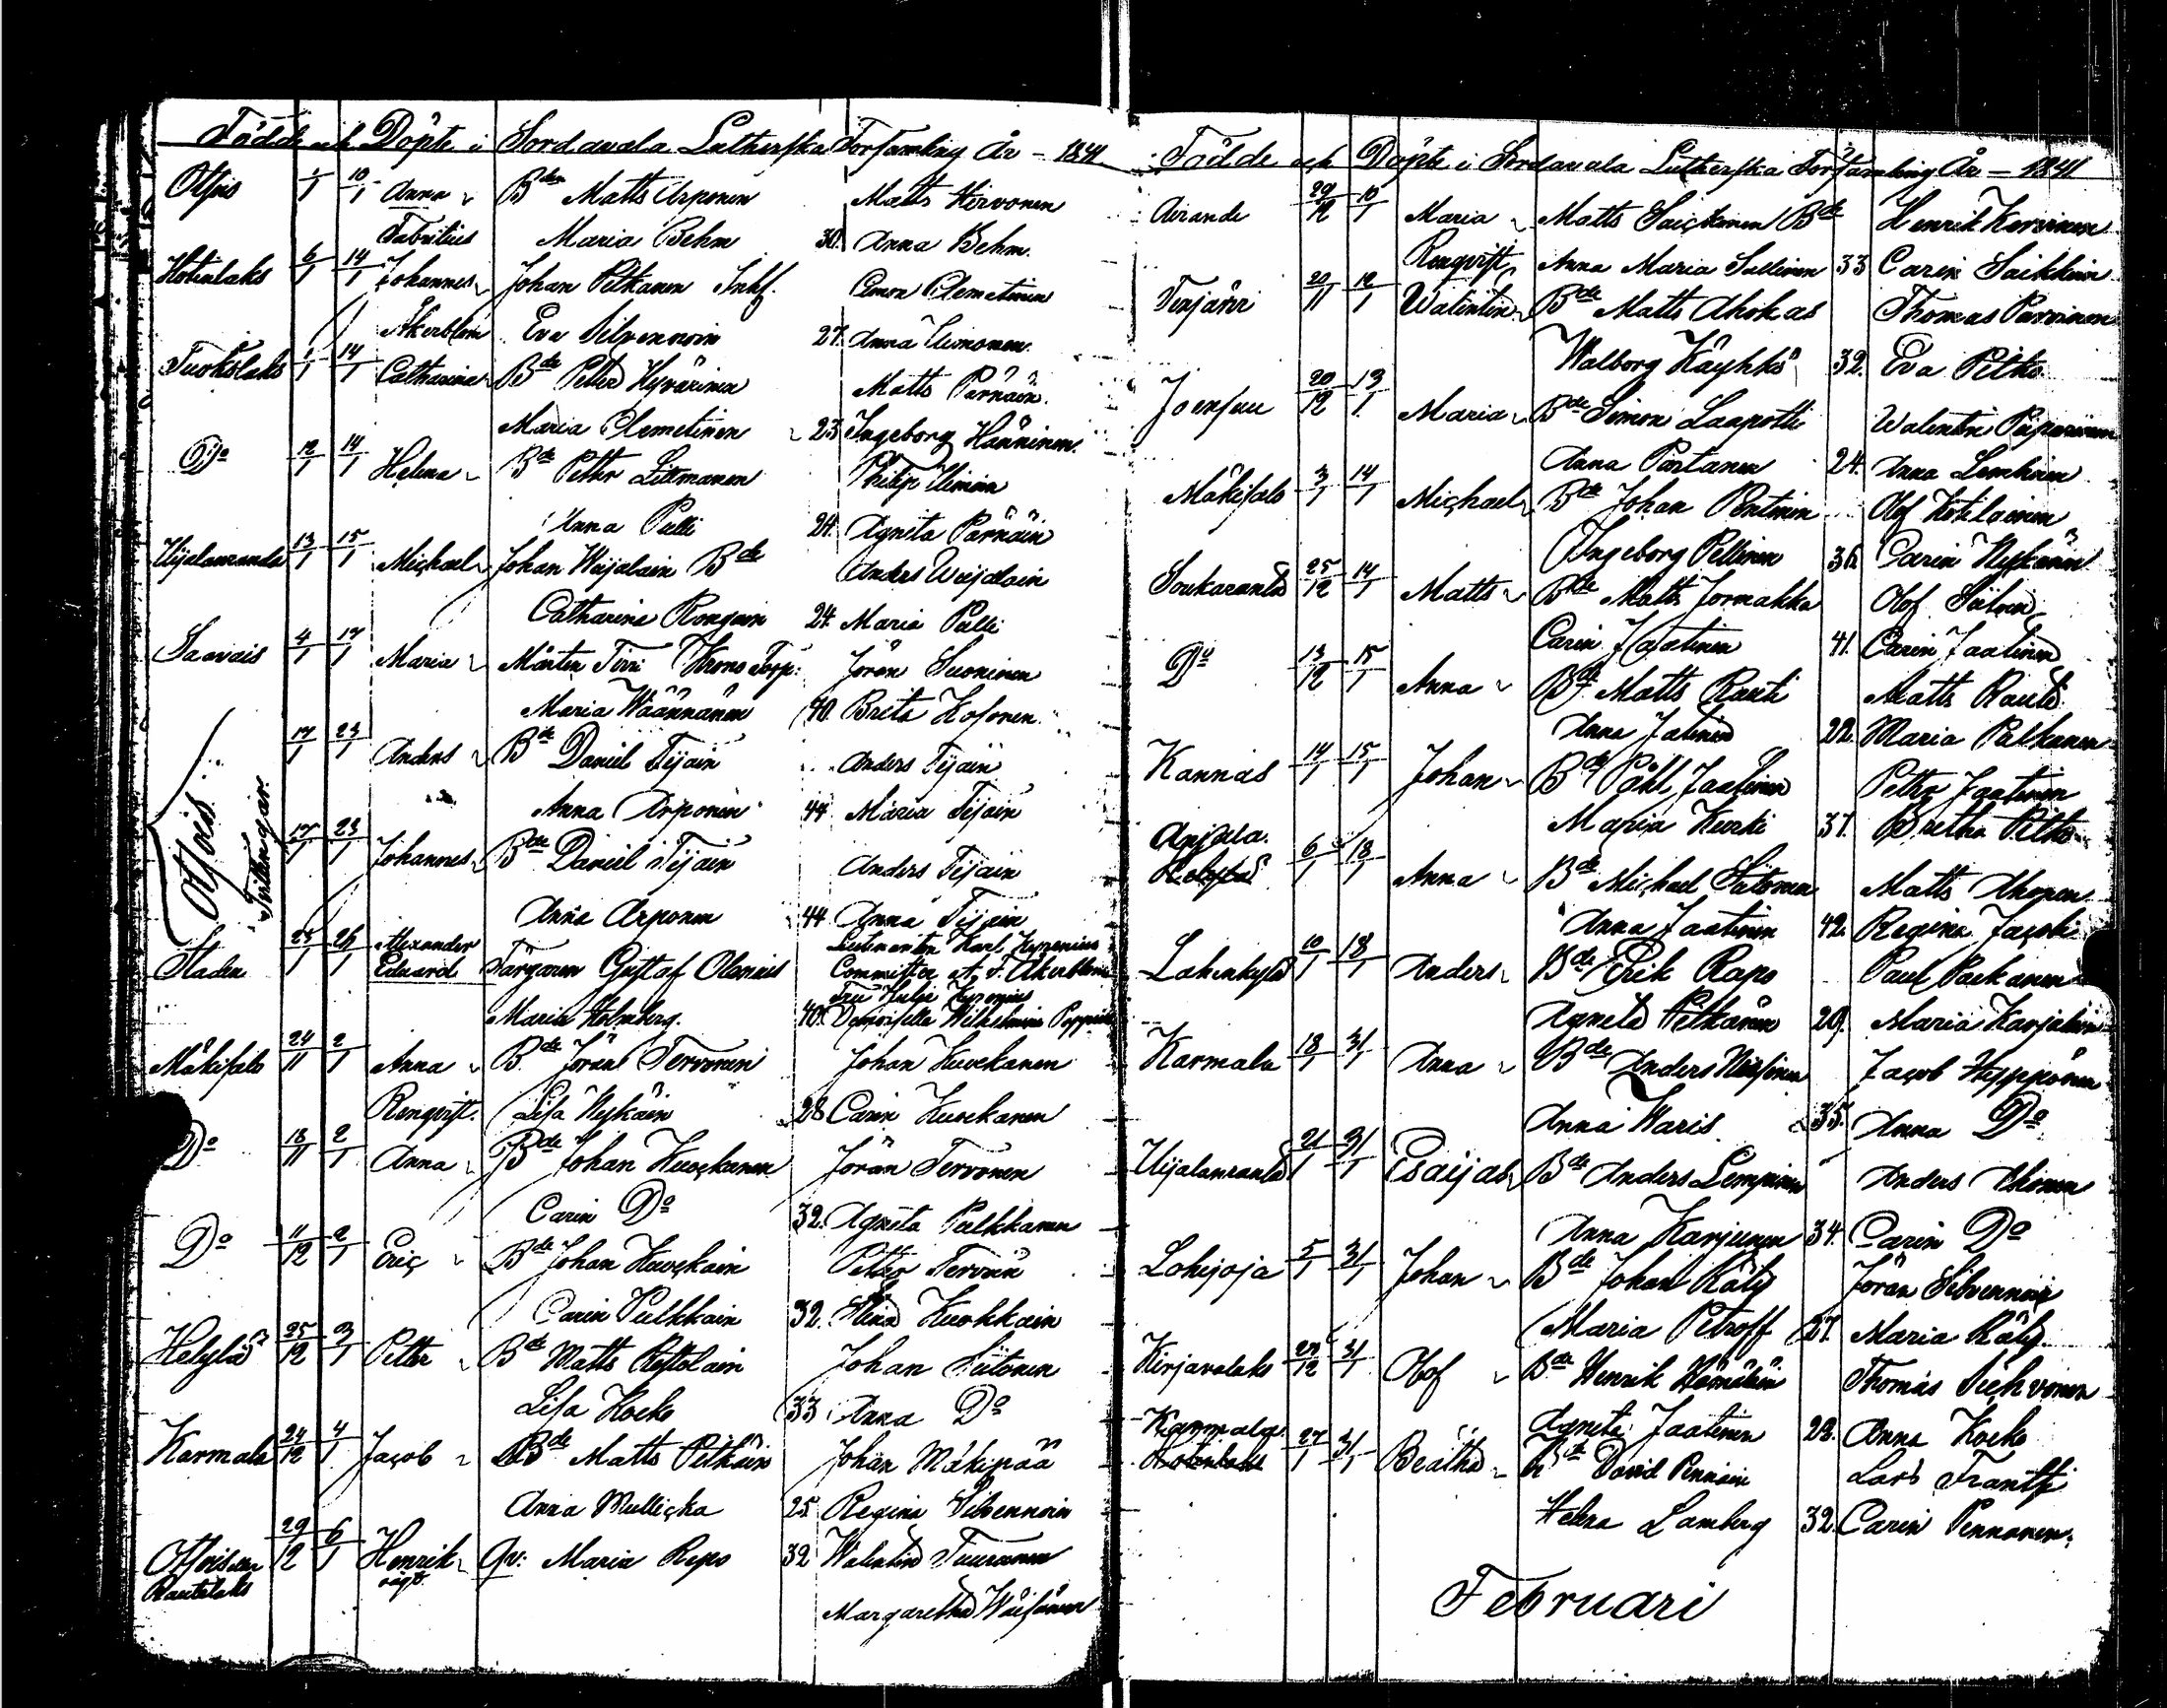 Födde och Döpte i Sordavala Lutherska Församling År - 1841
Otsois 1/1 10/1 Anna Bde Matts Arponen Matts Hirvonen
Fabritius Maria Behm 30. Anna Behm.
Hotinlaks 6/1 14/1 Johannes Johan Pitkanen Inhs. Simon Clemetinen
Åkerblom Eva Silvennoin 27. Anna
Tuokslaks 1/1 14/1 Catharina Bde Petter Hyvärinen Matts Pärnäin.
Maria Clemetinen 23 Ingeborg Hänninen.
Do 12/1 14/1 Helena Bde Petter Litmanen Philip
Anna Pulli 24. Agneta Pärnäin
Uijalanranda 13/1 15/1 Michael Johan Weijalain Bde Anders Weijalain
Catharina Rongain 24. Maria Pulli
Saavais 4/1 17/1 Maria Mårten Tirri Krons Torp: Jöran Suoninen
Maria Wäännänen 40. Brita Kosonen
Otsois Tvillingar.
17/1 23/1 Anders Bde Daniel Tijäin Anders Tijäin
Anna Arponen 44 Maria Tijäin
17/1 23/1 Johannes Bde Daniel Tijäin Anders Tijäin
Anna Arponen 44 Anna Tijäin
Staden 25/1 26/1 Alexander Eduard Färgaren Gustaf Olenius Lieutenanten Karl Kyrenius
Committer A. F. Åkerblom
Fru Julie Kyrenius
Maria Holmberg. 40. Demoiselle Wilhelmina
Mäkisalo 24/11 2/1 Anna Bde Jöran Tervonen Johan Kuvekanen
Renqvist. Lisa Nykäin 28 Carin Kuvekanen
Do 18/11 2/1 Anna Bde Johan Kuvekanen Jöran Tervonen
Carin Do 32. Agneta Pulkkanen
Do 11/12 2/1 Eric Bde Johan Kuvekain Petter Tervoin
Carin Pulkkain 32. Stina Kuokkain
Helylä 25/12 3/1 Petter Bde Matts Ristolain Johan Siitonen
Lisa Kocko 33 Anna Do
Karmala 24/12 4/1 Jacob Bde Matts Pitkäin Johan Mäkipää
Anna Mullicka 25. Regina Silvennoin
Otsoisen 29/12 6/1 Henrik Qv: Maria Repo 32 Walentin Tuuronen
Rautalaks oägt. Margaretha Wäisänen
Födde och Döpte i Sordavala Lutherska Församling År - 1841
Airande 29/12 10/1 Maria Matts Saickonen Bde Henrik Korvinen
Renqvist Anna Maria Sallinen 33 Carin Saikkoin
Tenjärvi 20/11 12/1 Walentin Bde Matts Ahokas Thomas Parvinen
Walborg Käyhkö 32. Eva Pitko
Joensuu 20/12 13/1 Maria Bde Simon Laapotti Walentin Päparinen
Anna Partanen 24. Anna Lemhäin
Mäkisalo 3/1 14/1 Michael Bde Johan Pentinen Olof Kotilainen
Ingeborg Pellinen 36. Carin Nykänin
Soukaranta 25/12 14/1 Matts Bde Matts Jormakka Olof Siitoin
Carin Jaatinen 41. Carin Jaatinen
Do 13/12 15/1 Anna Bde Matts Rauti Matts Rauti
Anna Jatinen 22. Maria Pulkanen
Kannas 14/1 15/1 Johan Bde Påhl Jaatinen Petter Jaatinen
Maria Kurki 37. Bretha Pitko
Anjala. 6/1 18/1 Anna Bde Michael Siitonen Matts Ahonen
Helylä Anna Jaatinen 42. Regina
Lahenkylä 10/1 18/1 Anders Bde Erik Rapo Paul Puckanen
Agneta Pitkänen 29. Maria Karjalain
Karmala 18/1 31/1 Anna Bde Anders Nissinen Jacob Hyppönen
Anna Waris. 35. Anna Do
Uijalanranta 21/1 31/1 Esaijas Bde Anders Lempinen Anders Ahonen
Anna Karjunen 34. Carin Do
Lohijoja 5/1 31/1 Johan Bde Johan Räty Jöran Silvennoin
Maria Petroff 27. Maria Räty
Kirjavalaks 27/12 31/1 Olof Bde Henrik Hämäläin Thomas Siehvonen
Agneta Jaatinen 22. Anna Kocko
Karmala. 27/1 31/1 Beätha Bde David Pennain Lars Frantsi
Hotinlaks Helena Lamberg 32. Carin Pennonen.
Februari